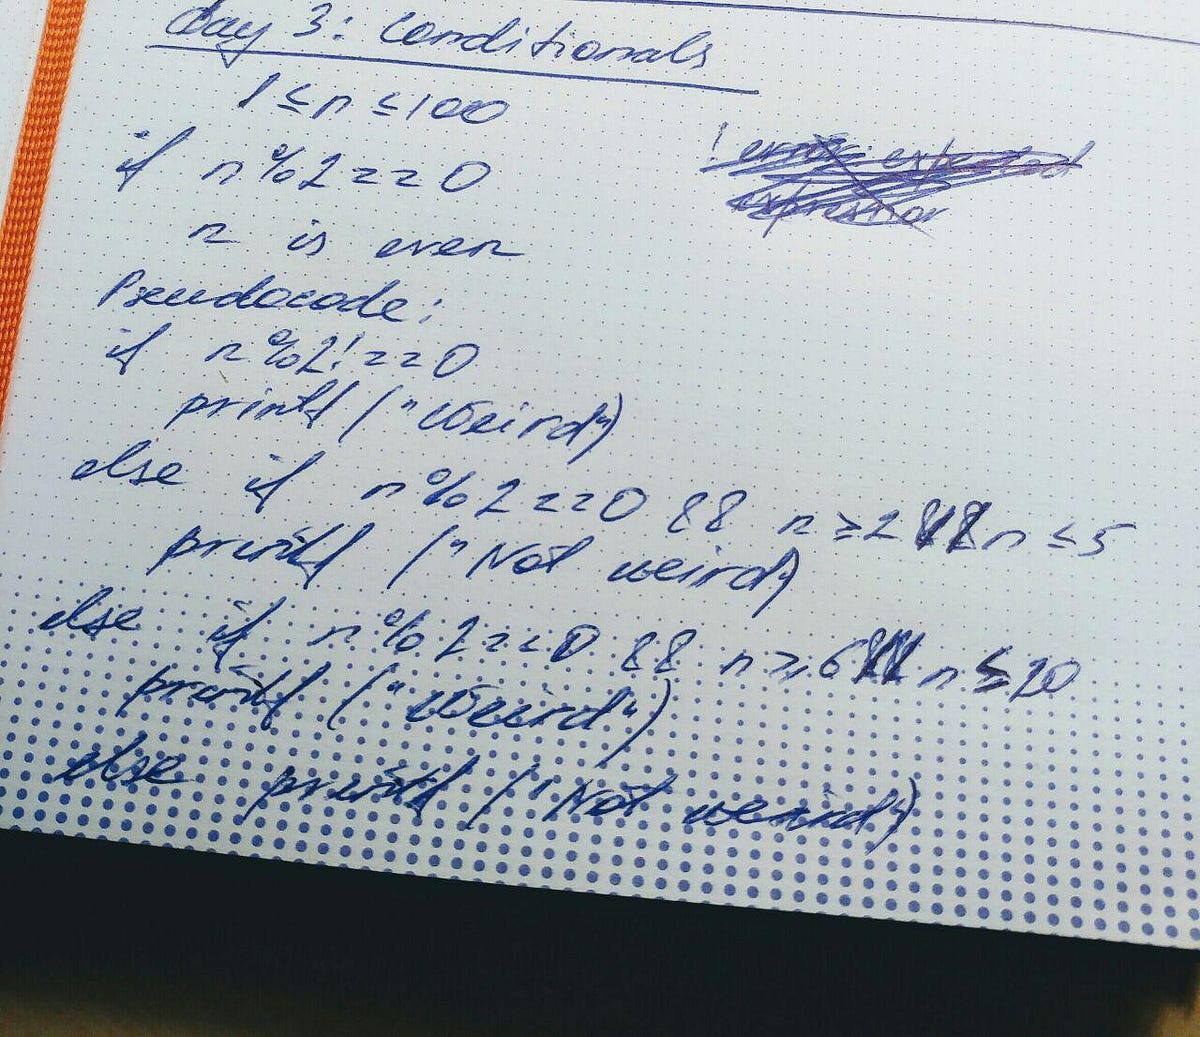 day 3: Conditionals
1 ≤ n ≤ 100
! error: expected
expression
if n%2==0
n is even
Pseudocode:
if n%2!==0
printf ("Weird")
else if n%2==0 && n≥2 && n ≤ 5
printf ("Not weird")
else if n%2==0 && n≥6 && n ≤ 20
printf ("Weird")
else printf ("Not weird")